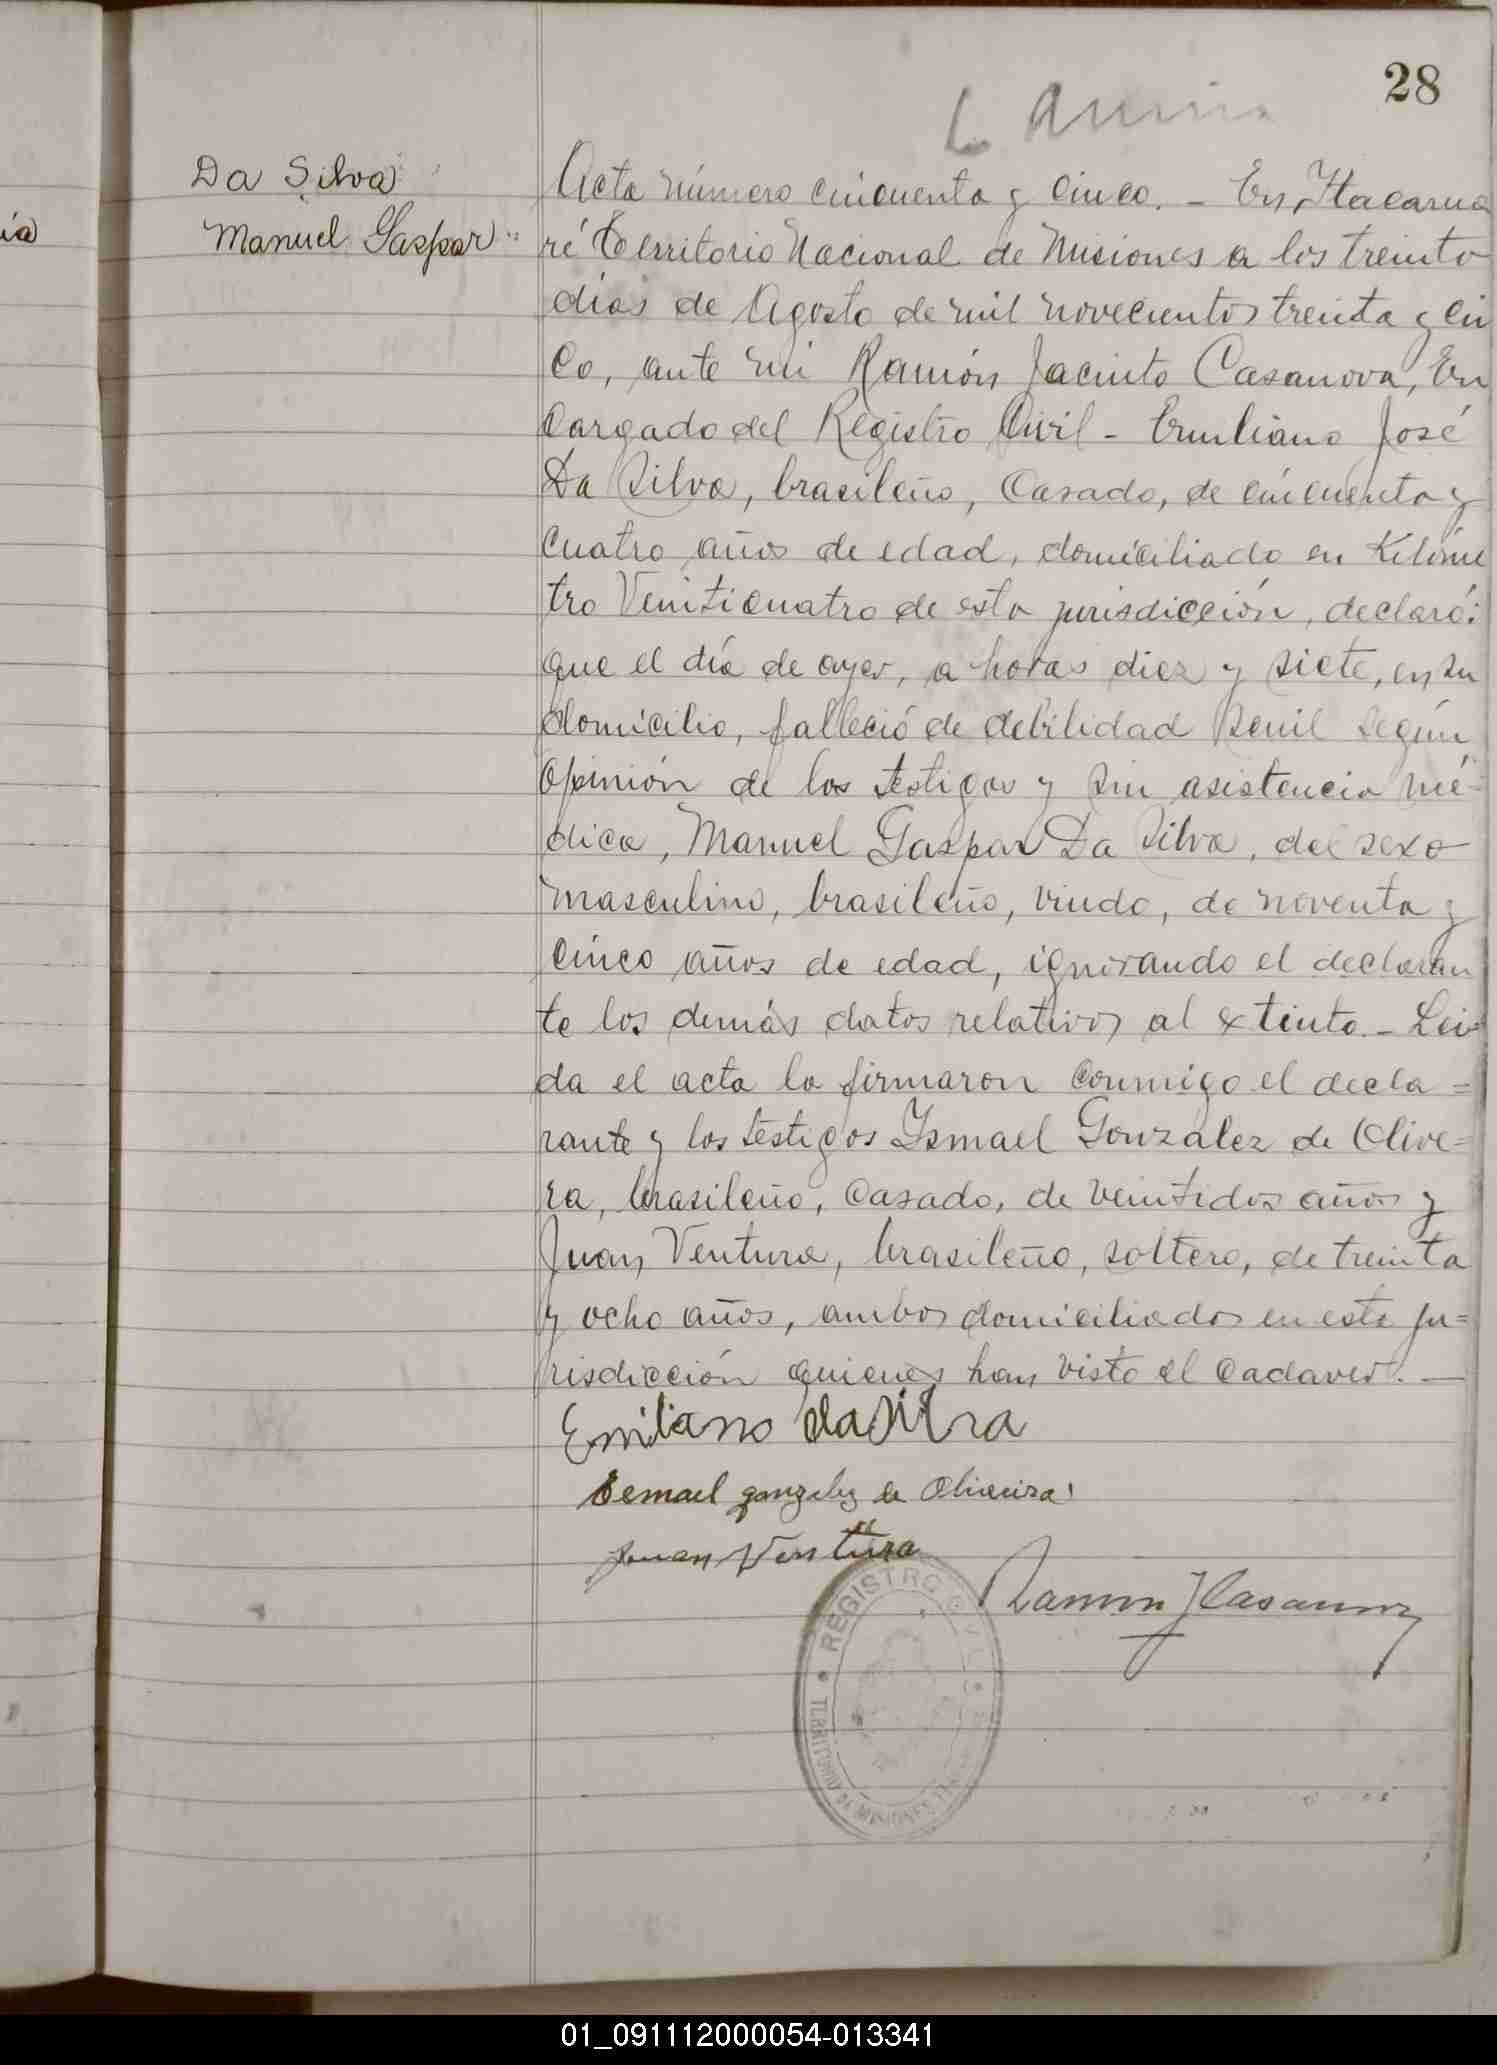 28
Da Silva
Manuel Gaspar
ia
Acta número cincuenta y cinco. - En Itacarua
ré Territorio Nacional de Misiones a los treinta
días de Agosto de mil novecientos treinta y cin
co, ante mi Ramón Jacinto Casanova, En
cargado del Registro Civil - Emiliano José
Da Silva, brasileño, casado, de cincuenta y
cuatro años de edad, domiciliado en Kilóme
tro Veinticuatro de esta jurisdicción, declaró:
que el día de ayer, a horas diez y siete, en su
domicilio, falleció de debilidad senil según
opinión de los testigos y sin asistencia mé-
dica, Manuel Gaspar Da Silva, del sexo
masculino, brasileño, viudo, de noventa y
cinco años de edad, ignorando el declaran
te los demás datos relativos al extinto. - Lei
da el acta la firmaron conmigo el decla=
rante y los testigos Ysmael Gonzalez de Olive=
ra, brasileño, casado, de veintidos años y
Juan Ventura, brasileño, soltero, de treinta
y ocho años, ambos domiciliados en esta ju=
risdicción quienes han visto el cadaver. —
Emiliano da Silva
Esmael gonzalez de Oliveira
Juan Ventura
Ramon J Casanova
REGISTRO CIVIL
TERRITORIO DE MISIONES
01_091112000054-013341